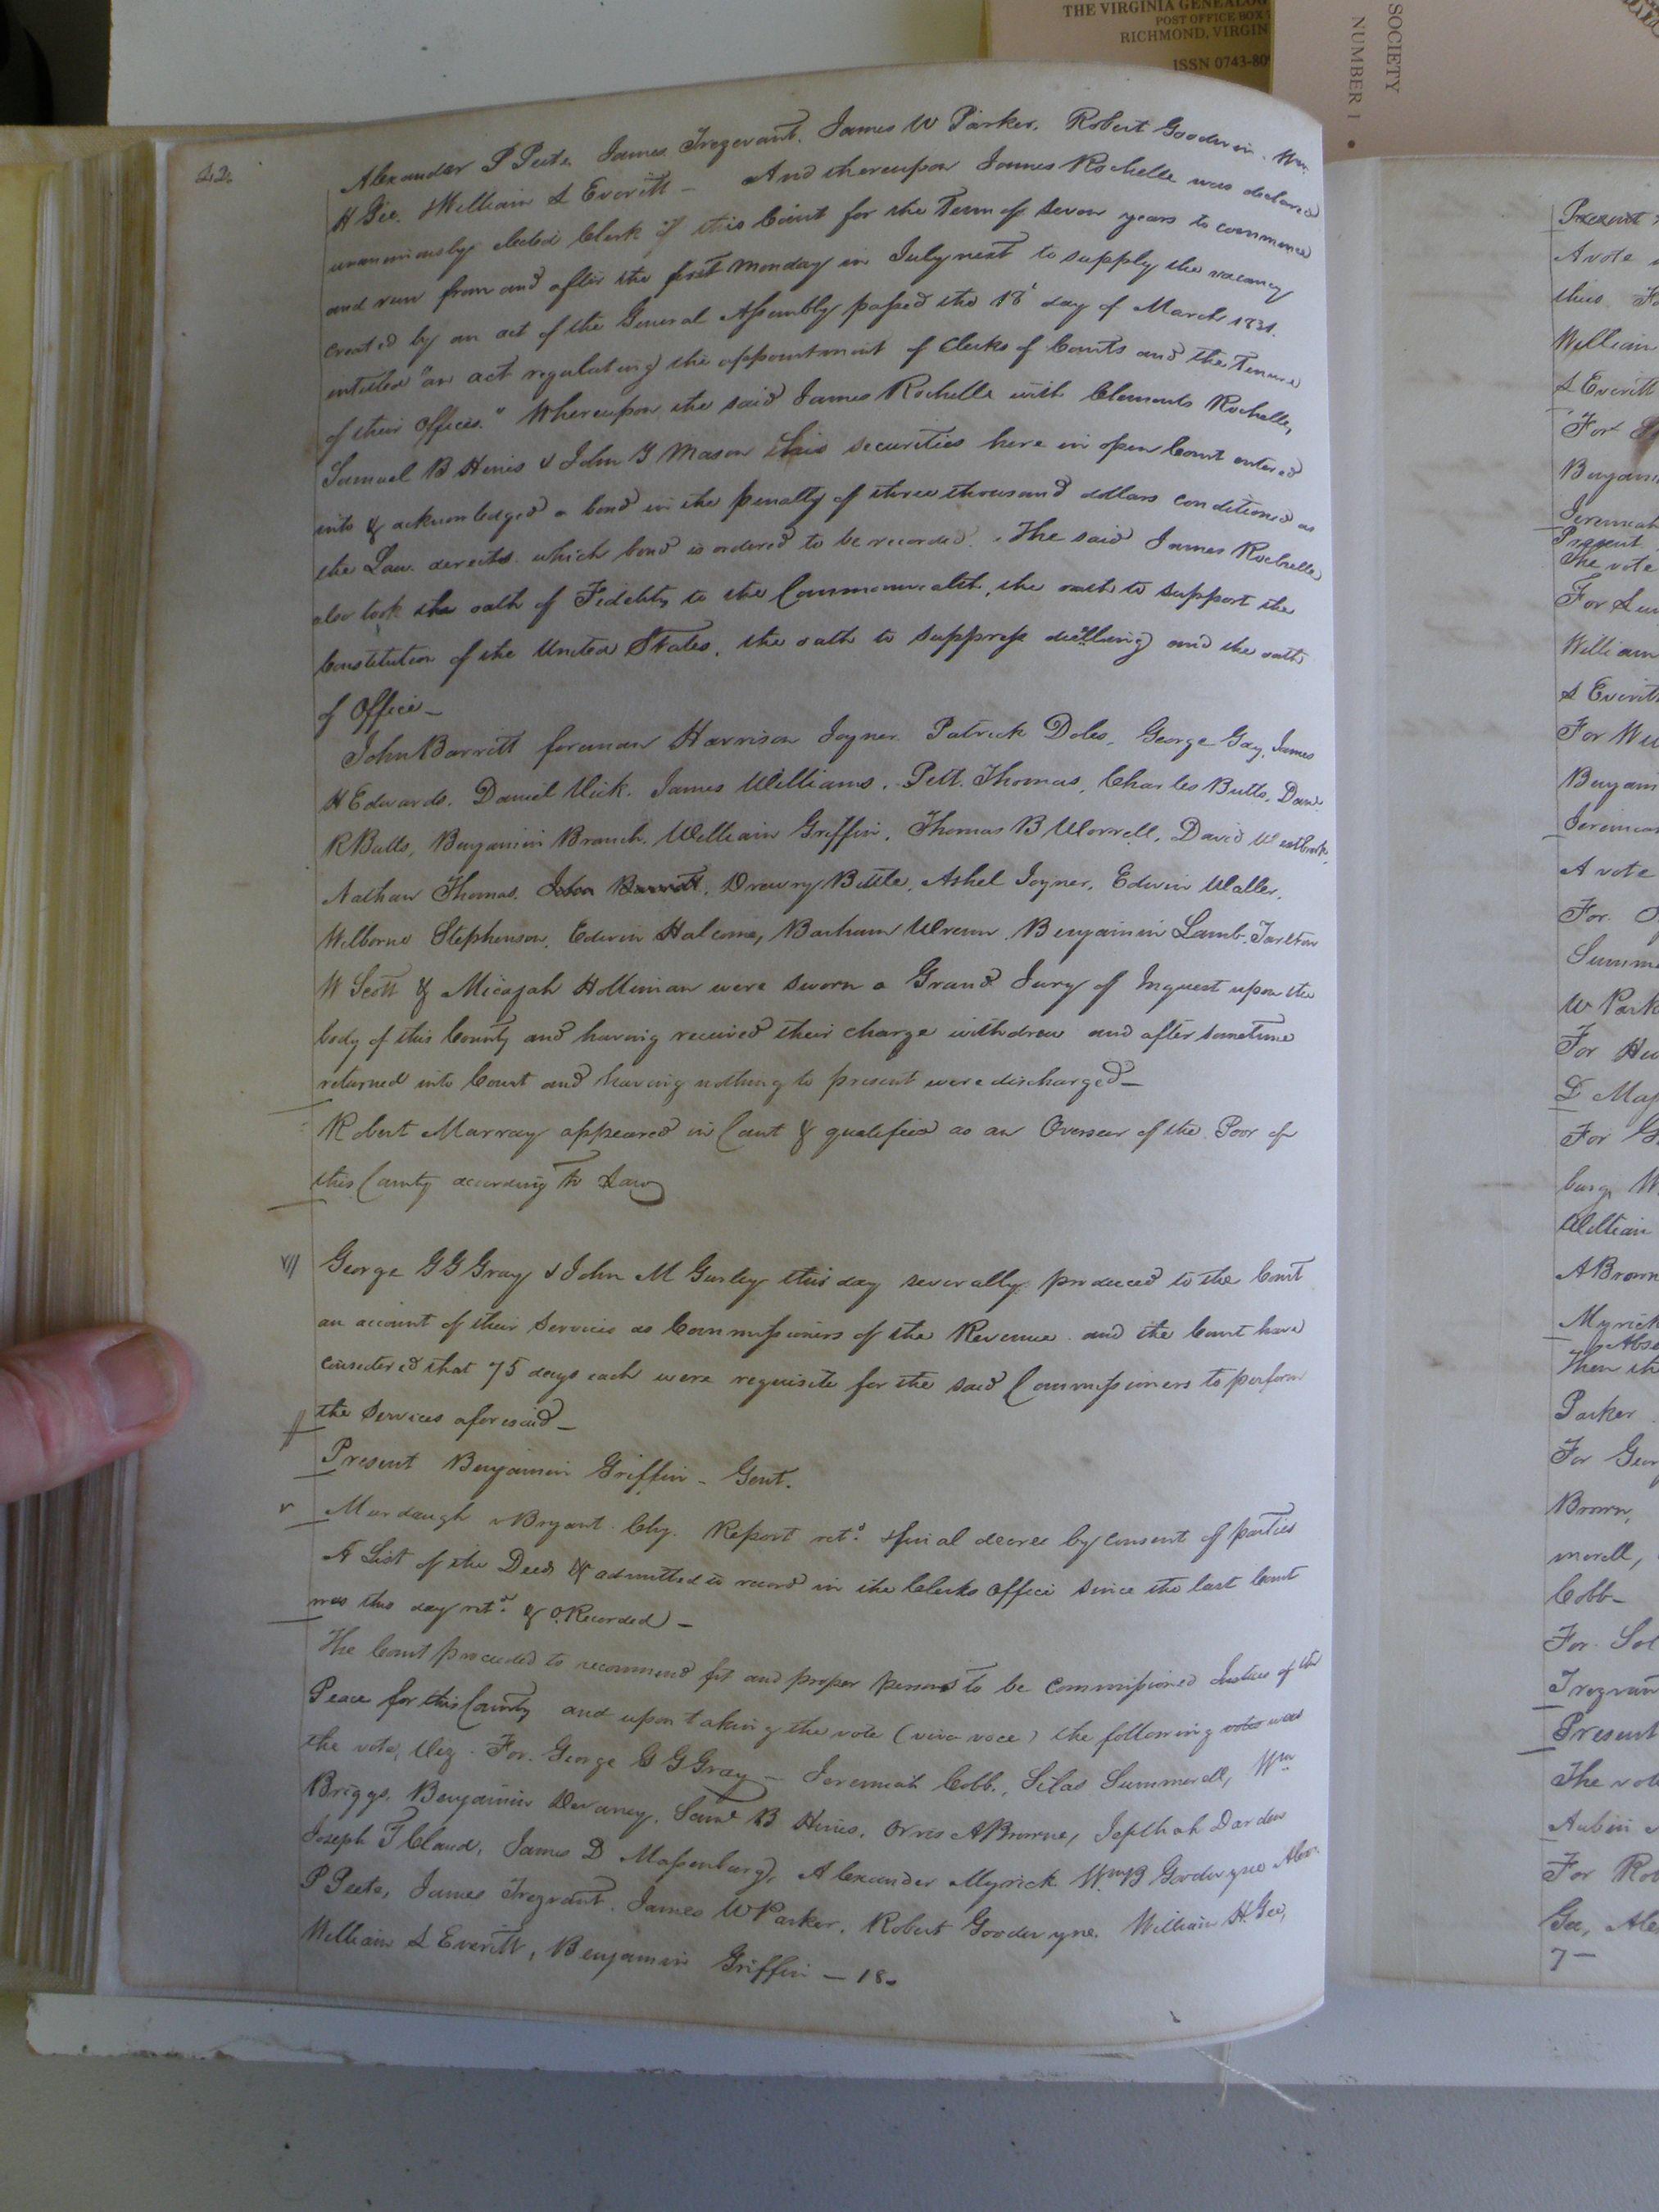 THE VIRGINIA GENEALOG
POST OFFICE BOX
RICHMOND, VIRGIN
ISSN 0743-80
SOCIETY
NUMBER 1 •
42
Alexander P Peete James Trezevant. James W Parker. Robert Goodwin. Wm.
H Gee. & William S Everitt - And thereupon James Rochelle was declared
unanimously elected Clerk of this Court for the Term of seven years to commence
and run from and after the first Monday in July next to supply the vacancy
created by an act of the General Assembly passed the 18 day of March 1831.
intitled "an act regulating the appointment of Clerks of Courts and the Tenure
of their Offices." Whereupon the said James Rochelle with Clements Rochelle,
Samuel B Hines & John Y Mason his securities here in open Court entered
into & acknowledged a bond in the penalty of three thousand dollars conditioned as
the Law directs which bond is ordered to be recorded. The said James Rochelle
also took the oath of Fidelity to the Commonwealth, the oath to support the
Constitution of the United States, the oath to suppress duelling and the oath
of Office -
John Barrett foreman Harrison Joyner Patrick Doles, George Gay, James
H Edwards. Daniel Vick. James Williams. Pett. Thomas, Charles Butts, Danl.
R Butts, Benjamin Branch. William Griffin, Thomas B Worrell, David Westbrook,
Nathan Thomas. John Barrett, Drewry Bittle, Ashel Joyner, Edwin Waller,
Wilborne Stephenson, Edwin Halcome, Barham Wrenn Benjamin Lamb. Tarlton
W Scott & Micajah Holliman were sworn a Grand Jury of Inquest upon the
body of this County and having received their charge withdrew and after sometime
returned into Court and having nothing to present were discharged -
Robert Murray appeared in Court & qualified as an Overseer of the Poor of
this County according to Law
George G G Gray & John M Gurley this day severally produced to the Court
an account of their services as Commissioners of the Revenue and the Court have
considered that 75 days each were requisite for the said Commissioners to perform
the services aforesaid -
Present Benjamin Griffin - Gent.
Murdaugh v Bryant Chy. Report retd. & final decree by consent of parties
A List of the Deeds & admitted to record in the Clerks Office since the last Court
was this day retd. & O. Recorded -
The Court proceeded to recommend fit and proper persons to be commissioned Justices of the
Peace for this County and upon taking the vote (viva voce) the following votes was
the vote, Viz. For. George G G Gray - Jeremiah Cobb, Silas Summerell, Wm
Briggs, Benjamin Devany, Saml B Hines, Orris A Browne, Jepthah Darden
Joseph T Claud, James D Massenburg, Alexander Myrick Wm B Goodwyne Alexr.
P Peete, James Trezvant. James W Parker, Robert Goodwyne, William H. Gee,
William S Everitt, Benjamin Griffin - 18.
Present
A vote
thus
William
S Everitt
For
Benjamin
Jeremiah
Present
The vote
For
William
S Everitt
For
Benjam
Jeremiah
A vote
For. O
Summe
W Park
For
D Mas
For
burg W
William
A Brown
Myrick
Abse
Then the
Parker
For Geor
Brown,
merell,
Cobb -
For. Sol
Trezvan
Present
The vote
Aubin
For Rob
Gee, Ale
7 -